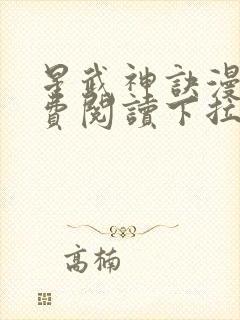 星武神訣漫
費閱讀下拉
高楠